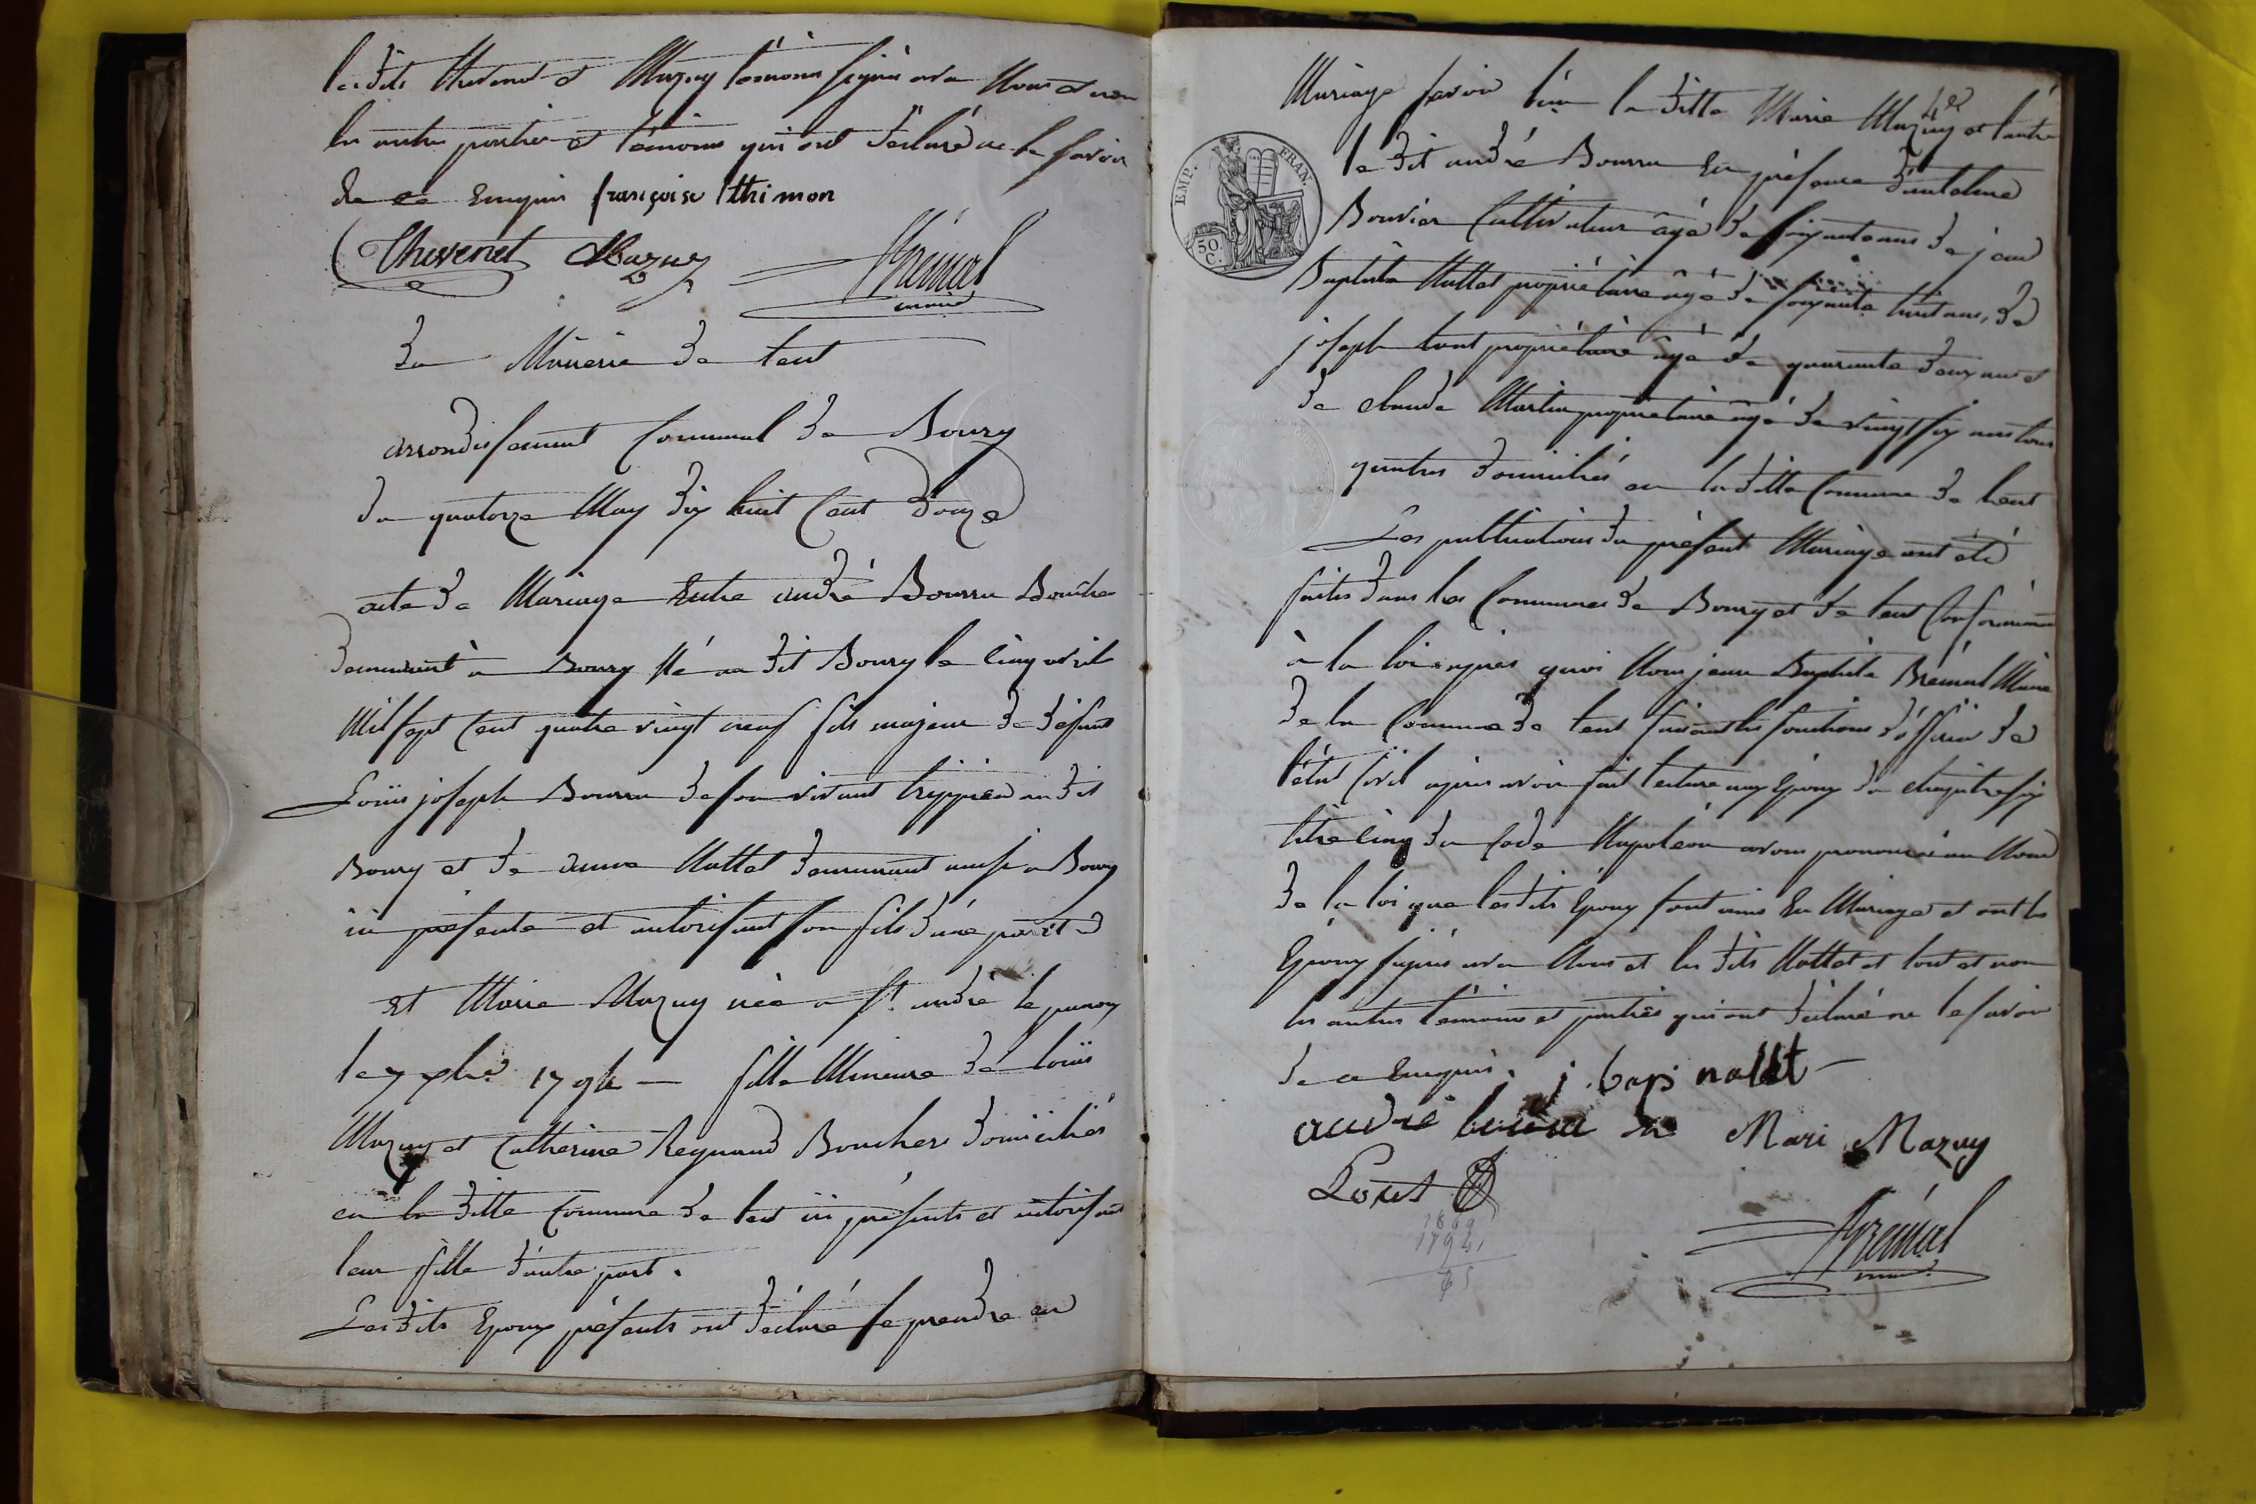 les dits Thevenet et Mazuy témoins signé avec Nous et non
les autres parties et témoins qui ont déclaré ne le savoir
de ce Enquis françoise thimon
Thevenet Mazuy Brémal
maire
De Mairerie de lent
arrondissement Communal de Bourg
du quatorze May dix huit Cent douze
acte de Mariage Entre andré Bourru Boucher
demeurant à Bourg né au dit Bourg le cinq avril
Mil sept Cent quatre vingt neuf fils majeur de défunt
Louis joseph Bourru de son vivant trippier au dit
Bourg et de anne Nallet demeurant aussi a Bourg
ici présente et autorisant son fils d'une part et
et Marie Mazuy née a St. andré le panoux
le 7 xbre 1794 — fille Mineure de louis
Mazuy et Catherine Reynaud Bouchers domiciliés
en la ditte Commune de lent ici présents et autorisant
leur fille d'autre part.
Les dits Epoux présents ont déclaré se prendre en
Mariage savoir l'un la ditte Marie Mazuy et l'autre
le dit andré Bourru En présence d'antoine
EMP. FRAN.
50. C.
Bouvier Cultivateur âgé de soixante ans de jean
Baptiste Nallet propriétaire âgé de soixante huit ans, de
joseph tout propriétaire âgé de quarante deux ans et
de claude Martin propriétaire âgé de vingt six ans tous
quatres domiciliés en la ditte Commune de lent
Les publications du présent Mariage ont été
faites dans les Communes de Bourg et de lent Conformément
à la loi après quoi Nous jean Baptiste Brémal Maire
de la Commune de lent faisant les fonctions d'officier de
l'état Civil après avoir fait lecture aux Epoux du chapitre six
titre cinq du Code Napoléon avons prononcé au Nom
de la loi que les dits Epoux sont unis En Mariage et ont les
Epoux signés avec Nous et les dits Nallet et tout et non
les autres témoins et parties qui ont déclaré ne le savoir
de ce Enquis. j. bapt nallet
andré Mari Mazuy
Tout
1869
1794
Brémal
maire